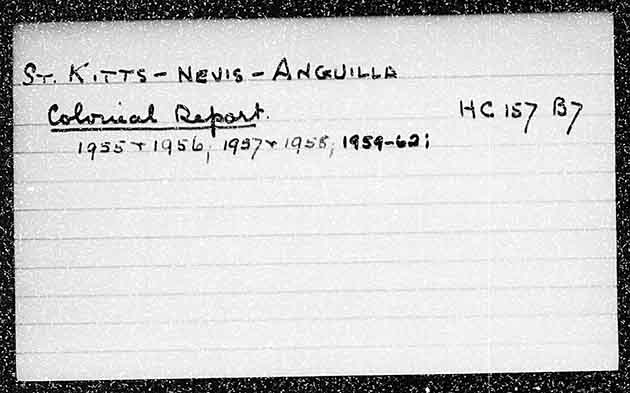 St. Kitts - Nevis - Anguilla
Colonial Report. HC 157 B7
1955 + 1956, 1957 + 1958, 1959-62;